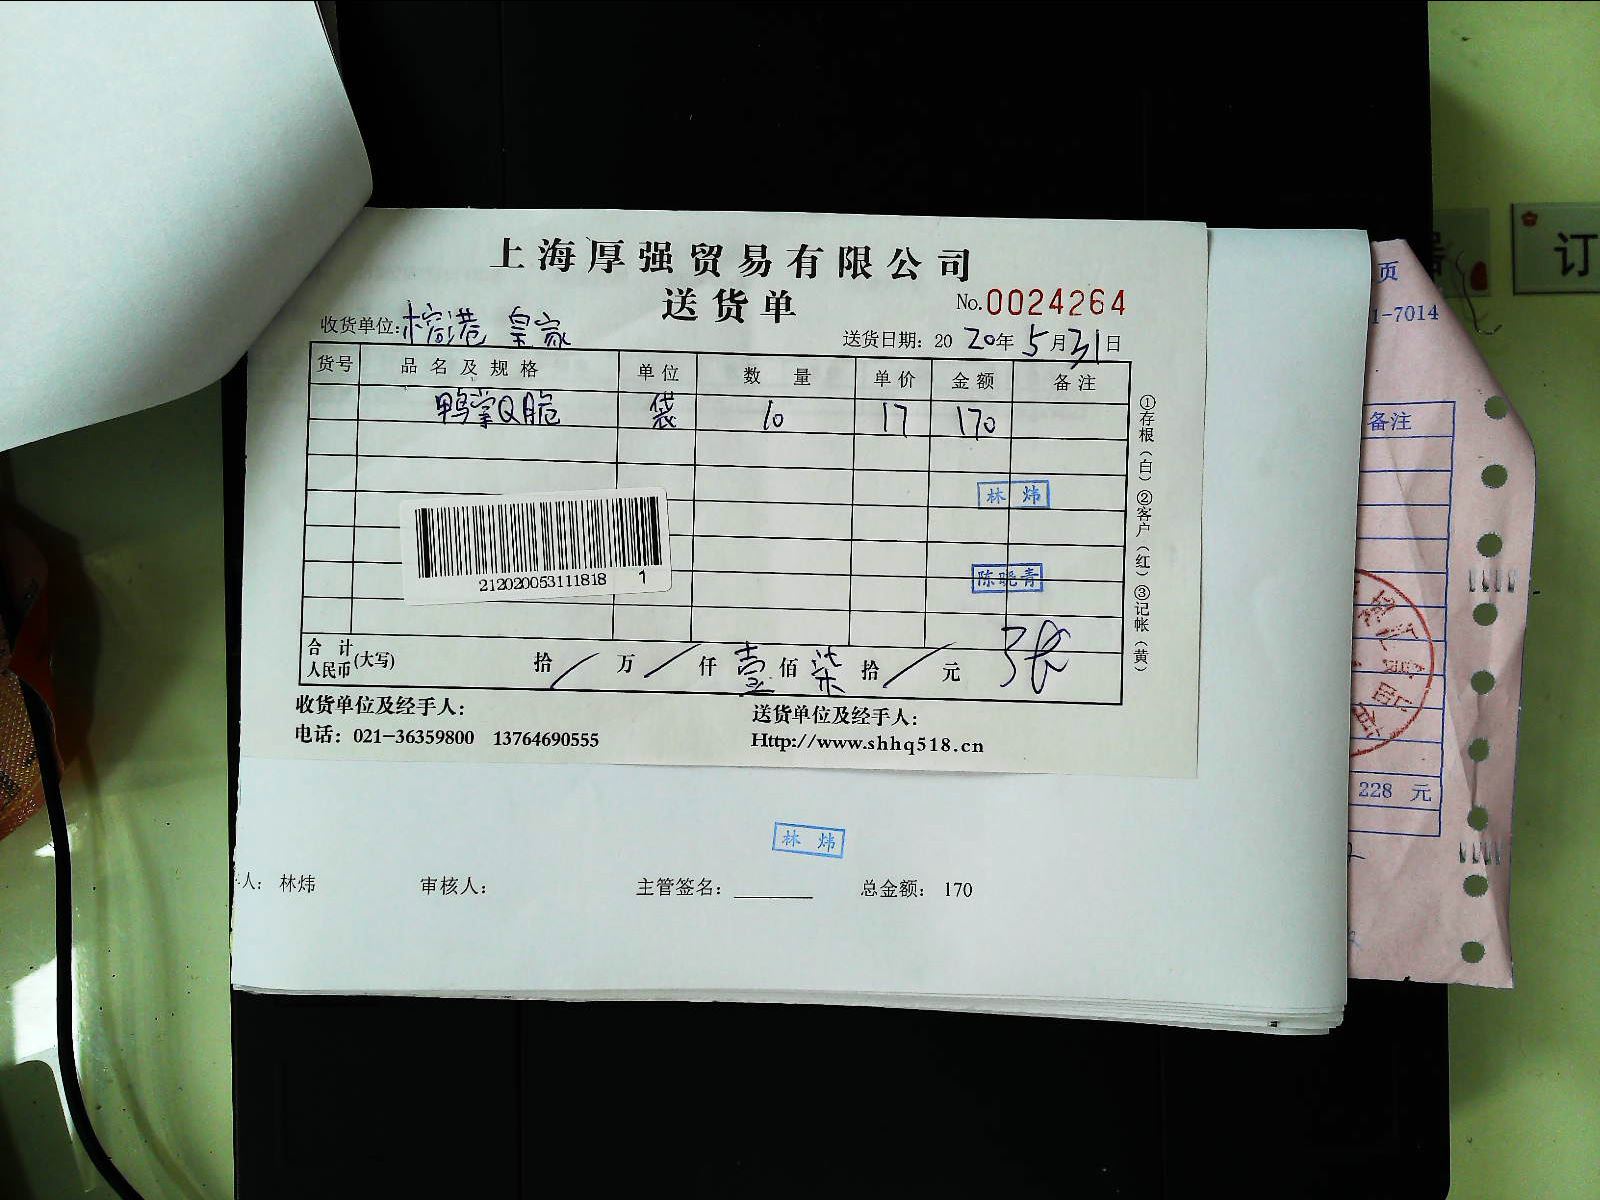 上海厚强贸易有限公司
送货单
No.0024264
收货单位:榕港 皇家
送货日期: 2020年5月31日
货号 品名及规格 单位 数量 单价 金额 备注
鸭掌Q脆 袋 10 17 170
林炜
陈晓青
212020053111818 1
合计人民币(大写) 拾/万/仟壹佰柒拾/元
收货单位及经手人:
送货单位及经手人:
电话: 021-36359800 13764690555
Http://www.shhq518.cn
①存根(白)②客户(红)③记帐(黄)
林炜
人: 林炜 审核人: 主管签名: 总金额: 170
页
1-7014
备注
228 元
订